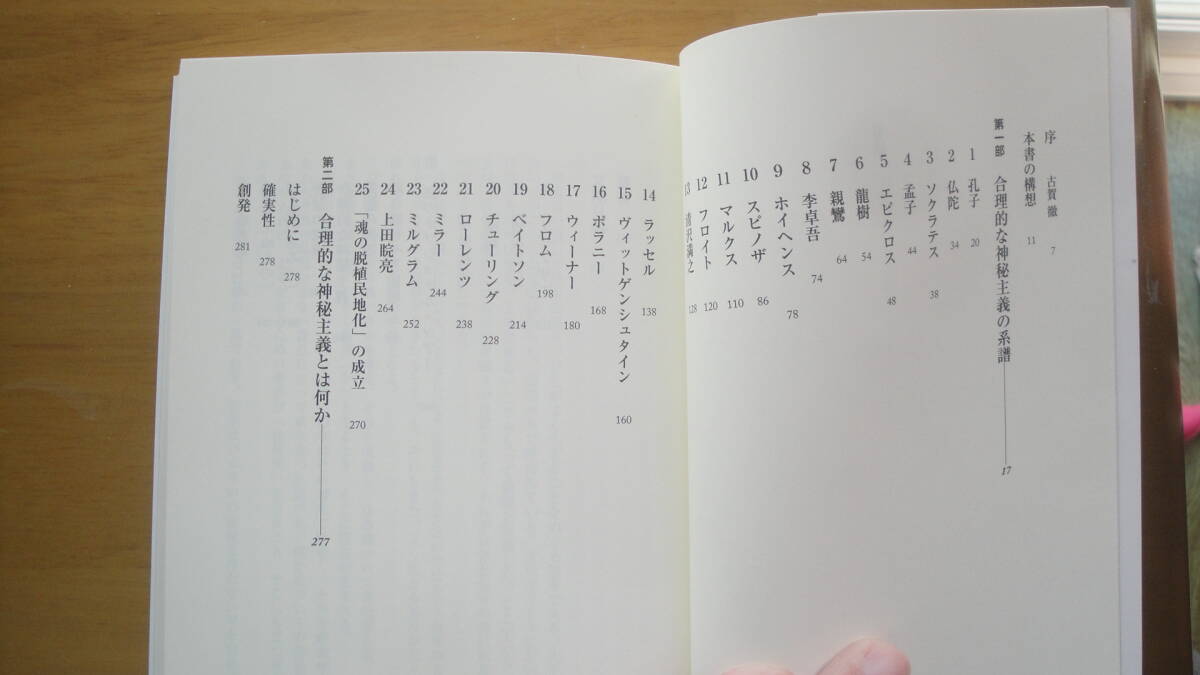 序 古賀 徹 7
本書の構想 11
第一部 合理的な神秘主義の系譜 17
1 孔子 20
2 仏陀 34
3 ソクラテス 38
4 孟子 44
5 エピクロス 48
6 龍樹 54
7 親鸞 64
8 李卓吾 74
9 ホイヘンス 78
10 スピノザ 86
11 マルクス 110
12 フロイト 120
13 清沢満之 128
14 ラッセル 138
15 ヴィットゲンシュタイン 160
16 ポラニー 168
17 ウィーナー 180
18 フロム 198
19 ベイトソン 214
20 チューリング 228
21 ローレンツ 238
22 ミラー 244
23 ミルグラム 252
24 上田睆亮 264
25 「魂の脱植民地化」の成立 270
第二部 合理的な神秘主義とは何か 277
はじめに 278
確実性 278
創発 281